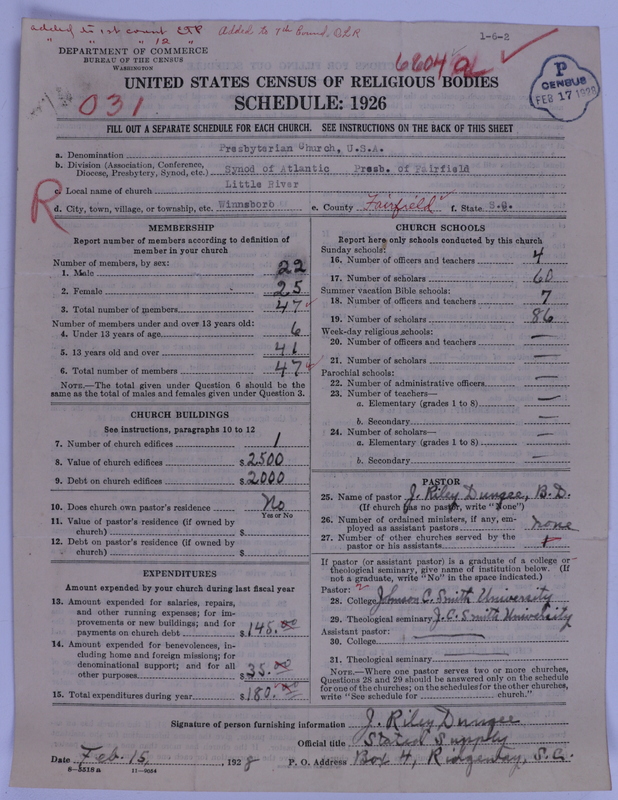 added to 1st count CTP
Added to 7th Count, OLR
" " " 12 "
1-6-2
DEPARTMENT OF COMMERCE
BUREAU OF THE CENSUS
WASHINGTON
6604
a
P
CENSUS
FEB 17 1928
UNITED STATES CENSUS OF RELIGIOUS BODIES
031
SCHEDULE: 1926
FILL OUT A SEPARATE SCHEDULE FOR EACH CHURCH. SEE INSTRUCTIONS ON THE BACK OF THIS SHEET
a. Denomination Presbyterian Church, U.S.A.
b. Division (Association, Conference, Diocese, Presbytery, Synod, etc.) Synod of Atlantic Presb. of Fairfield
c. Local name of church Little River
R
d. City, town, village, or township, etc. Winnsboro e. County Fairfield f. State S.C.
MEMBERSHIP
Report number of members according to definition of
member in your church
Number of members, by sex:
1. Male 22
2. Female 25
3. Total number of members 47
Number of members under and over 13 years old:
4. Under 13 years of age 6
5. 13 years old and over 41
6. Total number of members 47
NOTE.—The total given under Question 6 should be the
same as the total of males and females given under Question 3.
CHURCH BUILDINGS
See instructions, paragraphs 10 to 12
7. Number of church edifices 1
8. Value of church edifices $2500
9. Debt on church edifices $2000
10. Does church own pastor's residence No
Yes or No
11. Value of pastor's residence (if owned by
church) $
12. Debt on pastor's residence (if owned by
church) $
EXPENDITURES
Amount expended by your church during last fiscal year
13. Amount expended for salaries, repairs,
and other running expenses; for im-
provements or new buildings; and for
payments on church debt $145.00
14. Amount expended for benevolences, in-
cluding home and foreign missions; for
denominational support; and for all
other purposes $35.00
15. Total expenditures during year $180.00
CHURCH SCHOOLS
Report here only schools conducted by this church
Sunday schools:
16. Number of officers and teachers 4
17. Number of scholars 60
Summer vacation Bible schools:
18. Number of officers and teachers 7
19. Number of scholars 86
Week-day religious schools:
20. Number of officers and teachers —
21. Number of scholars —
Parochial schools:
22. Number of administrative officers —
23. Number of teachers—
a. Elementary (grades 1 to 8) —
b. Secondary —
24. Number of scholars—
a. Elementary (grades 1 to 8) —
b. Secondary —
PASTOR
25. Name of pastor J. Riley Dungee, B.D.
(If church has no pastor, write "None")
26. Number of ordained ministers, if any, em-
ployed as assistant pastors none
27. Number of other churches served by the
pastor or his assistants 1
If pastor (or assistant pastor) is a graduate of a college or
theological seminary, give name of institution below. (If
not a graduate, write "No" in the space indicated.)
Pastor:
28. College Johnson C. Smith University
29. Theological seminary J.C. Smith University
Assistant pastor:
30. College —
31. Theological seminary —
NOTE.—Where one pastor serves two or more churches,
Questions 28 and 29 should be answered only on the schedule
for one of the churches; on the schedules for the other churches,
write "See schedule for church."
Signature of person furnishing information J. Riley Dungee
Official title Stated Supply
Date Feb. 15, 1928 P. O. Address Box 4, Ridgeway, S.C.
6-5518a 11-9054